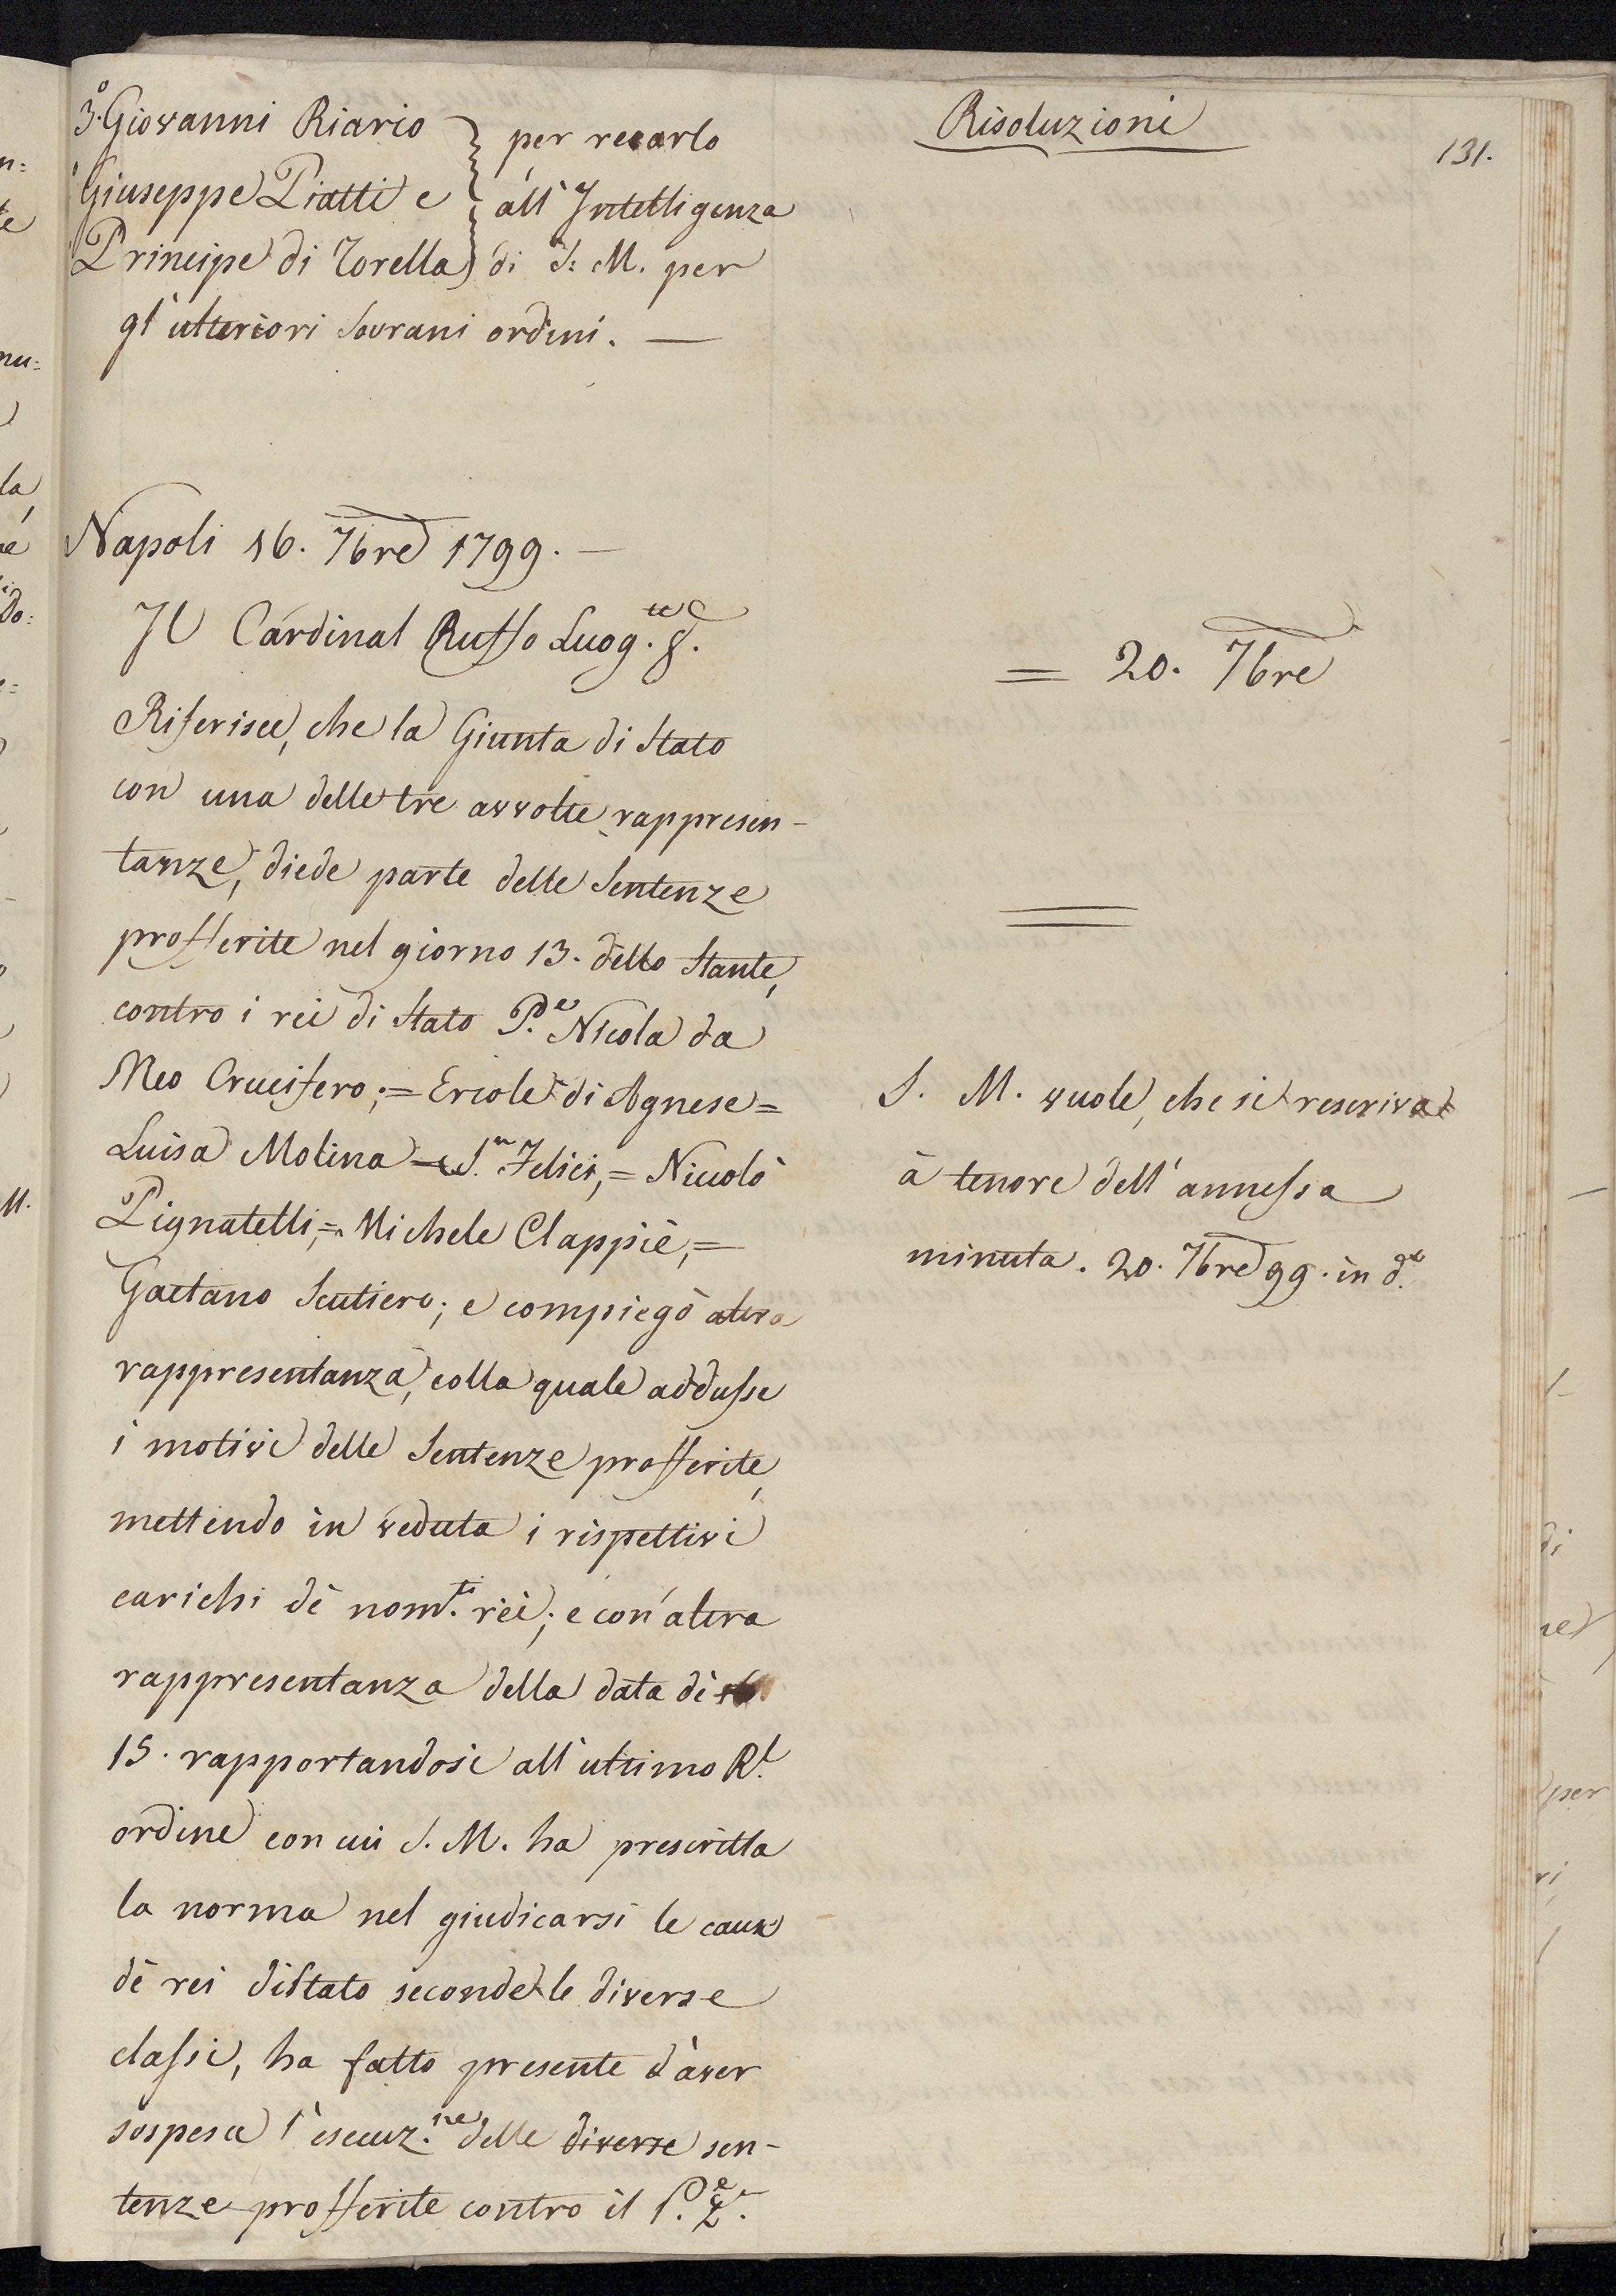 3.° Giovanni Riario } per recarlo
Giuseppe Piatti e } all'Intelligenza
Principe di Torella } di S: M. per
gl'ulteriori Sovrani ordini. —
Napoli 16. 7bre 1799. —
Il Cardinal Ruffo Luog.te G.
Riferisce, che la Giunta di Stato
con una delle tre avvolte rappresen-
tanze, diede parte delle Sentenze
profferite nel giorno 13. dello Stante,
contro i rei di Stato P.e Nicola da
Meo Crucifero; = Ercole di Agnese =
Luisa Molina S.n Felici, = Niccolò
Pignatelli, = Michele Clappiè, =
Gaetano Scutiero; e compiegò altra
rappresentanza, colla quale addusse
i motivi delle Sentenze profferite,
mettendo in veduta i rispettivi
carichi dè nom.ti rèi; e con altra
rappresentanza della data dè
15. rapportandosi all'ultimo R.l
ordine con cui S. M. ha prescritta
la norma nel giudicarsi le cause
dè rei di Stato seconde le diverse
classi, ha fatto presente d'aver
sospesa l'esecuz.ne delle diverse sen-
tenze profferite contro il P.e
Risoluzioni
131.
= 20. 7bre
S. M. vuole, che si rescriva
à tenore dell'annessa
minuta. 20. 7bre 99. in d.a